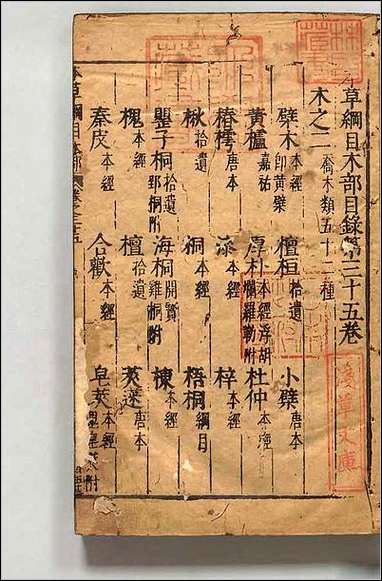 草綱目木部目錄第三十五卷
木之二 喬木類五十二種
檗木 本經 即黃檗 檀桓 拾遺 小檗 唐本
黃櫨 嘉祐 厚朴 本經 浮胡爛羅勒附 杜仲 本經
椿樗 唐本 漆 本經 梓 本經
楸 拾遺 桐 本經 梧桐 綱目
罌子桐 拾遺 郅桐附 海桐 開寶 雞桐附 楝 本經
槐 本經 檀 拾遺 莢蒾 唐本
秦皮 本經 合歡 本經 皂莢 本經 鬼皂莢附
草綱目木部
淺草文庫